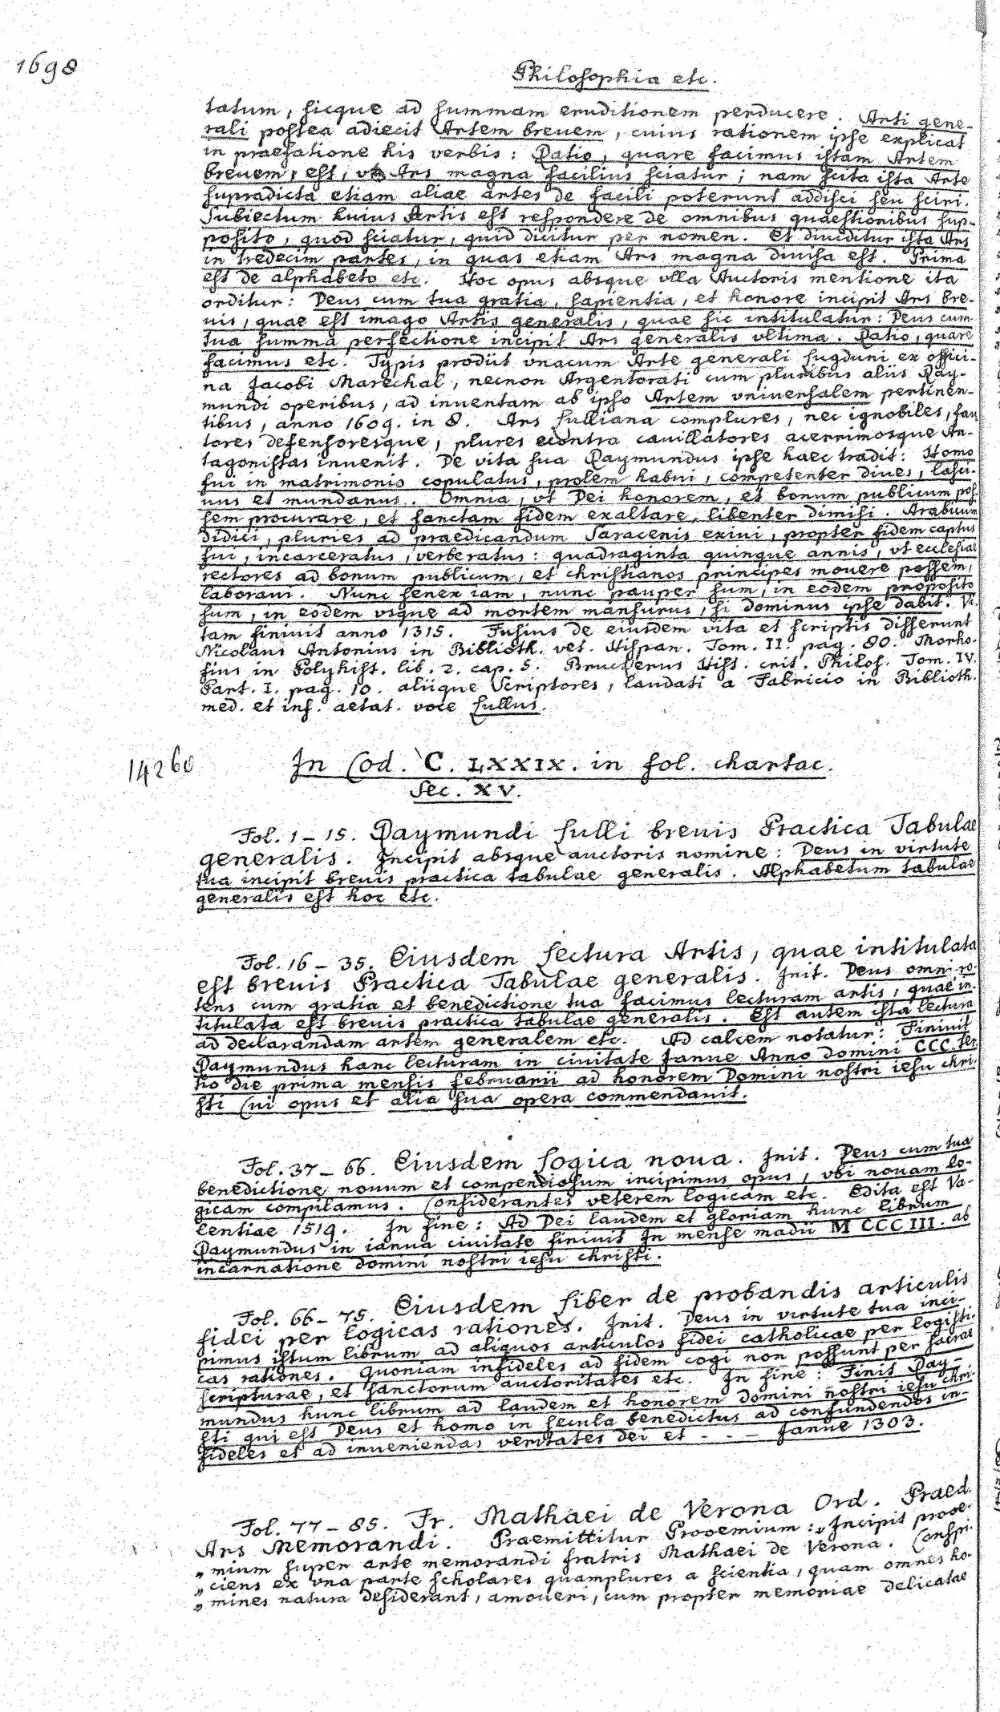 1698
Philosophia etc.
tatum, sicque ad summam eruditionem perducere. Arti gene-
rali postea adiecit Artem breuem, cuius rationem ipse explicat
in praefatione his verbis: Ratio, quare facimus istam Artem
breuem, est, vt Ars magna facilius sciatur; nam scita ista Arte
supradicta etiam aliae artes de facili poterunt addisci seu sciri.
Subiectum huius Artis est respondere de omnibus quaestionibus sup-
posito, quod sciatur, quid dicitur per nomen. Et diuiditur ista Ars
in tredecim partes, in quas etiam Ars magna diuisa est. Prima
est de alphabeto etc. Hoc opus absque vlla Auctoris mentione ita
orditur: Deus cum tua gratia, sapientia, et honore incipit Ars bre-
uis, quae est imago Artis generalis, quae sic intitulatur: Deus cum
tua summa perfectione incipit Ars generalis vltima. Ratio, quare
facimus etc. Typis prodiit vnacum Arte generali Lugduni ex offici-
na Jacobi Marechal, necnon Argentorati cum pluribus aliis Ray-
mundi operibus, ad inuentam ab ipso Artem vniuersalem pertinen-
tibus, anno 1609. in 8. Ars Lulliana complures, nec ignobiles, fau
tores defensoresque, plures econtra cauillatores acerrimosque An-
tagonistas inuenit. De vita sua Raymundus ipse haec tradit: Homo
fui in matrimonio copulatus, prolem habui, competenter diues, lasci-
uus et mundanus. Omnia, vt Dei honorem, et bonum publicum pos-
sem procurare, et sanctam fidem exaltare, libenter dimisi. Arabicum
didici, pluries ad praedicandum Saracenis exiui, propter fidem captus
fui, incarceratus, verberatus: quadraginta quinque annis, vt ecclesiae
rectores ad bonum publicum, et christianos principes mouere possem,
laboraui. Nunc senex iam, nunc pauper sum, in eodem proposito
sum, in eodem vsque ad mortem mansurus, si dominus ipse dabit. Vi-
tam finiuit anno 1315. Fusius de eiusdem vita et scriptis disserunt
Nicolaus Antonius in Biblioth. vet. Hispan. Tom. II. pag. 80. Morho-
fius in Polyhist. lib. 2. cap. 5. Bruckerus Hist. crit. Philos. Tom. IV.
Part. I. pag. 10. aliique Scriptores, laudati a Fabricio in Biblioth.
med. et inf. aetat. voce Lullus.
14260
In Cod. C. LXXIX. in fol. chartac.
Sec. XV.
Fol. 1 – 15. Raymundi Lulli breuis Practica Tabulae
generalis. Incipit absque auctoris nomine: Deus in virtute
tua incipit breuis practica tabulae generalis. Alphabetum tabulae
generalis est hoc etc.
Fol. 16 – 35. Eiusdem Lectura Artis, quae intitulata
est breuis Practica Tabulae generalis. Init. Deus omnipo-
tens cum gratia et benedictione tua facimus lecturam artis, quae in-
titulata est breuis practica tabulae generalis. Est autem ista lectura
ad declarandam artem generalem etc. Ad calcem notatur: Finiuit
Raymundus hanc lecturam in ciuitate Janue Anno domini CCC ter
tio die prima mensis februarii ad honorem Domini nostri iesu chri-
sti Cui opus et alia sua opera commendauit.
Fol. 37 – 66. Eiusdem Logica noua. Init. Deus cum tua
benedictione nouum et compendiosum incipimus opus, vbi nouam lo-
gicam compilamus. Considerantes veterem logicam etc. Edita est Va-
lentiae 1519. In fine: Ad Dei laudem et gloriam hunc librum
Raymundus in ianua ciuitate finiuit In mense madii M CCC III. ab
incarnatione domini nostri iesu christi.
Fol. 66 – 75. Eiusdem Liber de probandis articulis
fidei per logicas rationes. Init. Deus in virtute tua inci-
pimus istum librum ad aliquos articulos fidei catholicae per logisti-
cas rationes. Quoniam infideles ad fidem cogi non possunt per sacrae
scripturae, et sanctorum auctoritates etc. In fine: Finit Ray-
mundus hunc librum ad laudem et honorem domini nostri iesu chri-
sti qui est Deus et homo in secula benedictus ad confundendos in-
fideles et ad inueniendas veritates dei et - - - Janue 1303.
Fol. 77 – 85. Fr. Mathaei de Verona Ord. Praed.
Ars Memorandi. Praemittitur Prooemium: „Incipit prooe-
„mium super arte memorandi fratris Mathaei de Verona. Conspi-
„ciens ex vna parte scholares quamplures a scientia, quam omnes ho-
„mines natura desiderant, amoueri, cum propter memoriae delicatae